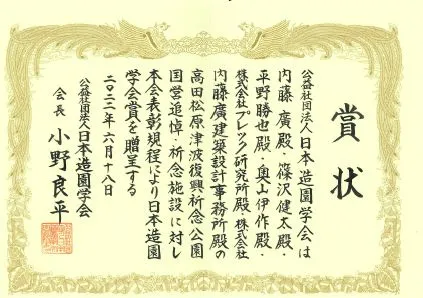 賞状
公益社団法人日本造園学会は
内藤廣殿・篠沢健太殿・
平野勝也殿・奥山伊作殿・
株式会社プレック研究所殿・株式会社
内藤廣建築設計事務所殿の
高田松原津波復興祈念公園
国営追悼・祈念施設に対し
本会表彰規程により日本造園
学会賞を贈呈する
二〇二二年六月十八日
公益社団法人日本造園学会
会長 小野良平